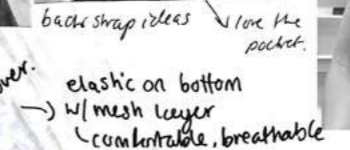 back strap ideas
love the
pocket.
elastic on bottom
w/ mesh layer
comfortable, breathable